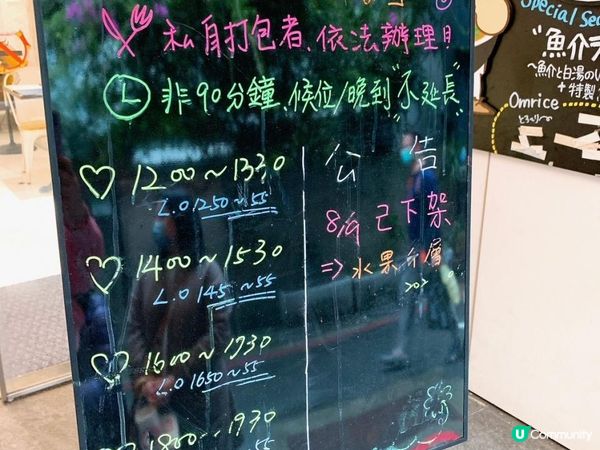 私自打包者、依法辦理!
L 非90分鐘、候位/晚到"不延長"
♡ 1200~1330
L.O 1250~55
♡ 1400~1530
L.O 145 ~55
♡ 1600~1730
L.O 1650~55
1800~1930
55
公告
8/9 已下架
⇒ 水果千層
Special Se
"魚介
~魚介と白湯の
+特製
Omrice
U Community